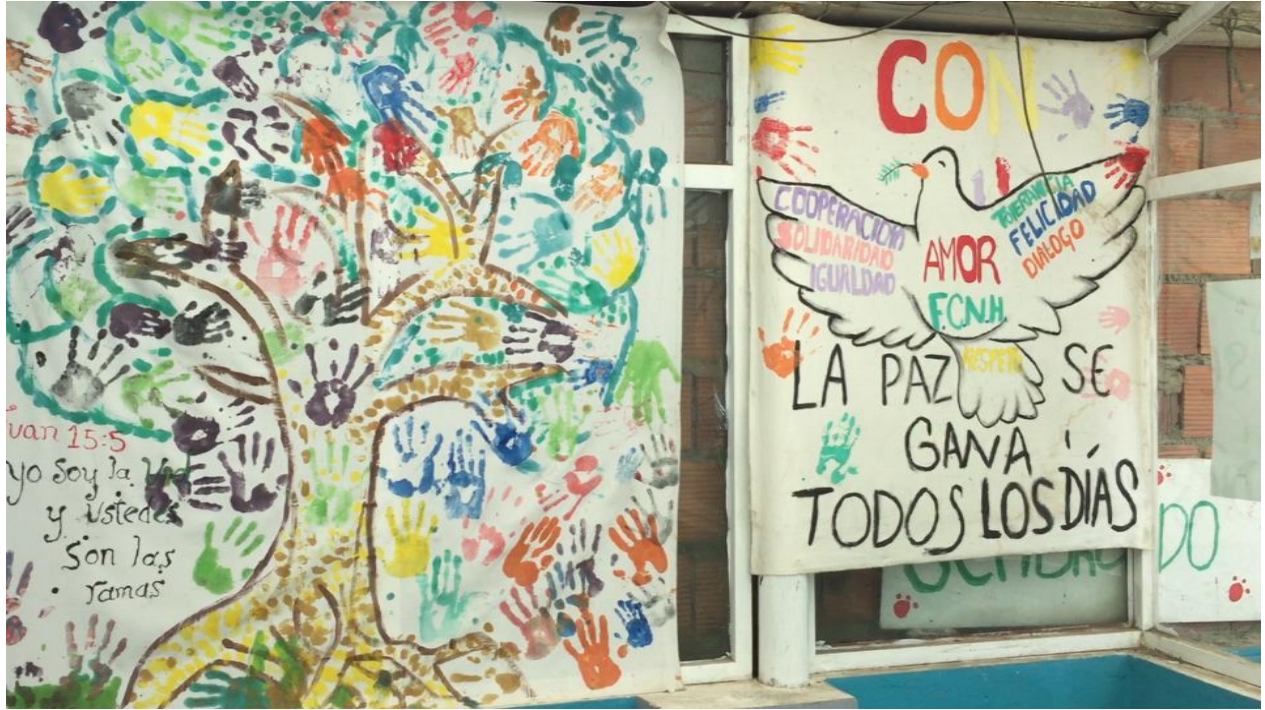 Juan 15:5
yo soy la Vid
y ustedes
son las
ramas
CON
COOPERACION
SOLIDARIDAD
IGUALDAD
AMOR
F.C.N.H.
TOLERANCIA
FELICIDAD
DIÁLOGO
RESPETO
LA PAZ SE
GANA
TODOS LOS DÍAS
DO